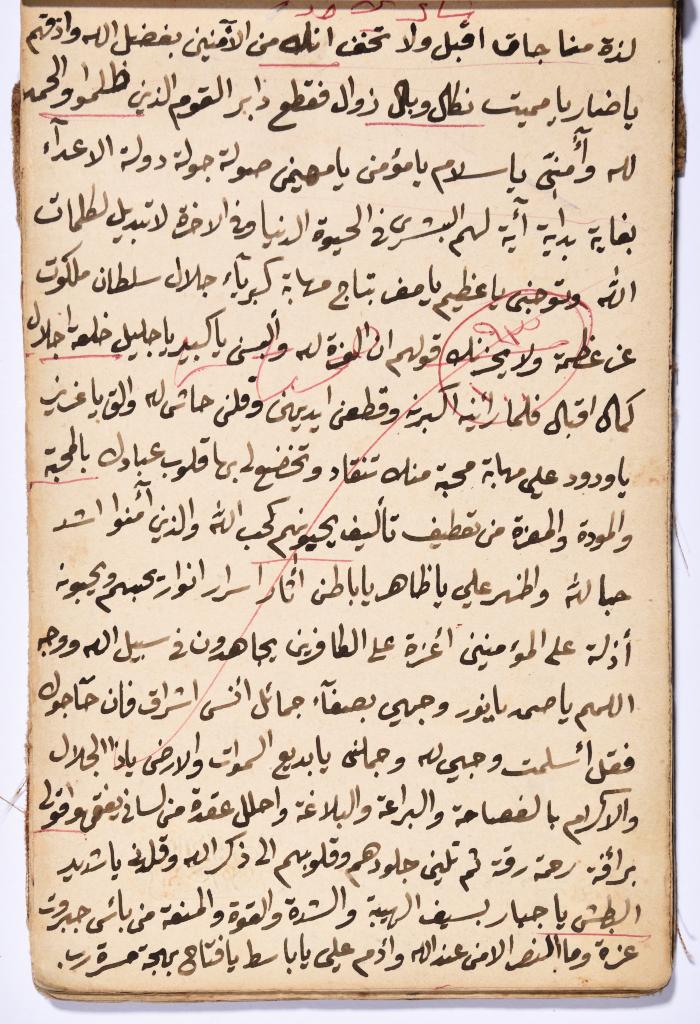 لذة مناجات اقبل ولا تخف انك من الآمنين بفضل الله واذقهم
يا ضار يا مميت نكال وبال زوال فقطع دابر القوم الذين ظلموا والحمد
لله وآمنّي يا سلام يا مؤمن يا مهيمن صولة جولة دولة الاعدآء
بغاية بداية آية لهم البشرى في الحيوة الدنيا وفي الاخرة لا تبديل لكلمات
الله وتوجني يا عظيم يا معز بتاج مهابة كبريآء جلال سلطان ملكوت
عز عظمة ولا يحزنك قولهم ان العزة لله والبسني يا كبير يا جليل خلعة اجلال
كمال اقبال فلما رأينه اكبرنه وقطعن ايديهن وقلن حاش لله والق يا عزيز
يا ودود علي مهابة محبة منك تنقاد وتخضع لي بها قلوب عبادك بالمحبة
والمودة والمعزة من تعطيف تأليف يحبونهم كحب الله والذين آمنوا اشد
حبا لله واظهر علي يا ظاهر يا باطن اثار اسرار انوار يحبهم ويحبونه
أذلة على المؤمنين اعزة على الكافرين يجاهدون في سبيل الله ووجه
اللهم يا صمد يا نور وجهي بصفآء جمال انس اشراق فان حآجوك
فقل أسلمت وجهي لله وجملني يا بديع السموات والارض يا ذا الجلال
والاكرام بالفصاحة والبراعة والبلاغة واحلل عقدة من لساني يفقهوا قولي
برافة رحمة رقة ثم تلين جلودهم وقلوبهم الى ذكر الله وقلدني يا شديد
البطش يا جبار بسيف الهيبة والشدة والقوة والمنعة من بائس جبروت
عزة وما النصر الا من عند الله وادم علي يا باسط يا فتاح بهجة مسرة رب